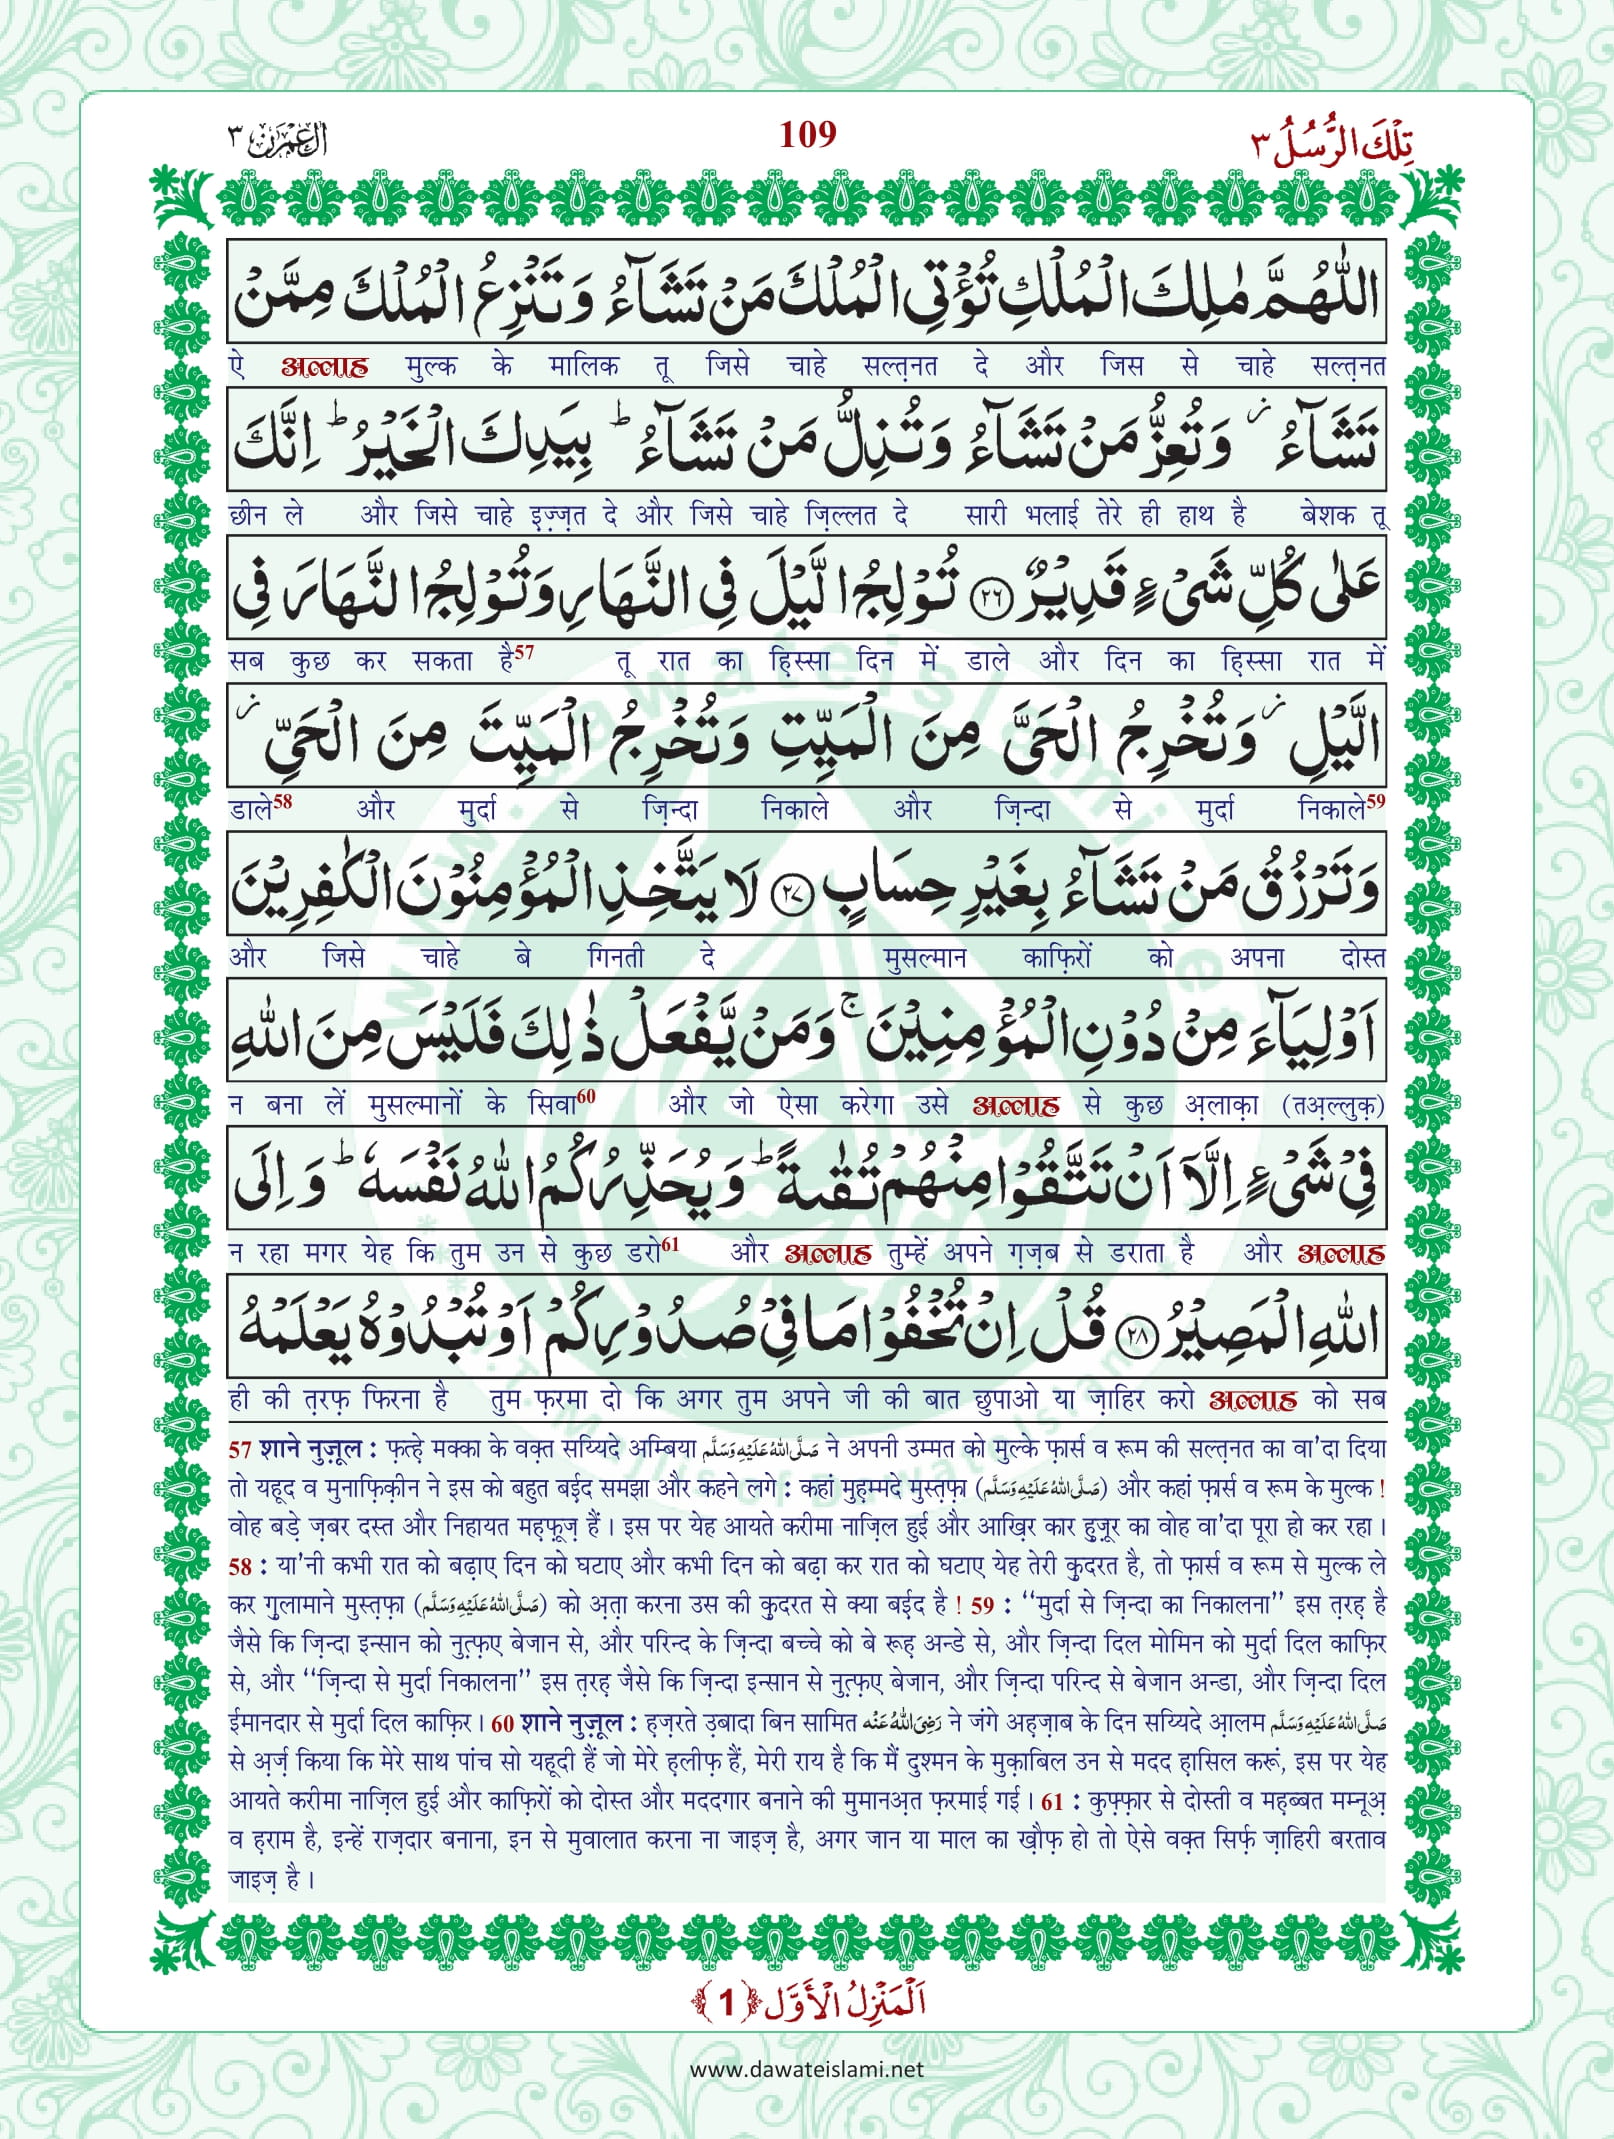 اٰل عِمْرٰن ٣ 109 تِلْكَ الرُّسُلُ ٣
اللّٰهُمَّ مٰلِكَ الْمُلْكِ تُؤْتِی الْمُلْكَ مَنْ تَشَآءُ وَ تَنْزِعُ الْمُلْكَ مِمَّنْ
ऐ अल्लाह मुल्क के मालिक तू जिसे चाहे सल्त़नत दे और जिस से चाहे सल्त़नत
تَشَآءُ ٘ وَ تُعِزُّ مَنْ تَشَآءُ وَ تُذِلُّ مَنْ تَشَآءُ ؕ بِیَدِكَ الْخَیْرُ ؕ اِنَّكَ
छीन ले और जिसे चाहे इ़ज़्ज़त दे और जिसे चाहे ज़िल्लत दे सारी भलाई तेरे ही हाथ है बेशक तू
عَلٰى كُلِّ شَیْءٍ قَدِیْرٌ ﴿٢٦﴾ تُوْلِجُ الَّیْلَ فِی النَّهَارِ وَ تُوْلِجُ النَّهَارَ فِی
सब कुछ कर सकता है57 तू रात का ह़िस्सा दिन में डाले और दिन का ह़िस्सा रात में
الَّیْلِ ٘ وَ تُخْرِجُ الْحَیَّ مِنَ الْمَیِّتِ وَ تُخْرِجُ الْمَیِّتَ مِنَ الْحَیِّ ٘
डाले58 और मुर्दा से ज़िन्दा निकाले और ज़िन्दा से मुर्दा निकाले59
وَ تَرْزُقُ مَنْ تَشَآءُ بِغَیْرِ حِسَابٍ ﴿٢٧﴾ لَا یَتَّخِذِ الْمُؤْمِنُوْنَ الْكٰفِرِیْنَ
और जिसे चाहे बे गिनती दे मुसल्मान काफ़िरों को अपना दोस्त
اَوْلِیَآءَ مِنْ دُوْنِ الْمُؤْمِنِیْنَ ۚ وَ مَنْ یَّفْعَلْ ذٰلِكَ فَلَیْسَ مِنَ اللّٰهِ
न बना लें मुसल्मानों के सिवा60 और जो ऐसा करेगा उसे अल्लाह से कुछ अ़लाक़ा (तअ़ल्लुक़)
فِیْ شَیْءٍ اِلَّاۤ اَنْ تَتَّقُوْا مِنْهُمْ تُقٰىةً ؕ وَ یُحَذِّرُكُمُ اللّٰهُ نَفْسَهٗ ؕ وَ اِلَى
न रहा मगर येह कि तुम उन से कुछ डरो61 और अल्लाह तुम्हें अपने ग़ज़ब से डराता है और अल्लाह
اللّٰهِ الْمَصِیْرُ ﴿٢٨﴾ قُلْ اِنْ تُخْفُوْا مَا فِیْ صُدُوْرِكُمْ اَوْ تُبْدُوْهُ یَعْلَمْهُ
ही की त़रफ़ फिरना है तुम फ़रमा दो कि अगर तुम अपने जी की बात छुपाओ या ज़ाहिर करो अल्लाह को सब
57 शाने नुज़ूल : फ़त्ह़े मक्का के वक़्त सय्यिदे अम्बिया صَلَّى اللهُ عَلَيْهِ وَسَلَّم ने अपनी उम्मत को मुल्के फ़ार्स व रूम की सल्त़नत का वा’दा दिया
तो यहूद व मुनाफ़िक़ीन ने इस को बहुत बई़द समझा और कहने लगे : कहां मुह़म्मदे मुस्त़फ़ा (صَلَّى اللهُ عَلَيْهِ وَسَلَّم) और कहां फ़ार्स व रूम के मुल्क !
वोह बड़े ज़बर दस्त और निहायत मह़फ़ूज़ हैं । इस पर येह आयते करीमा नाज़िल हुई और आख़िर कार हुज़ूर का वोह वा’दा पूरा हो कर रहा ।
58 : या’नी कभी रात को बढ़ाए दिन को घटाए और कभी दिन को बढ़ा कर रात को घटाए येह तेरी क़ुदरत है, तो फ़ार्स व रूम से मुल्क ले
कर ग़ुलामाने मुस्त़फ़ा (صَلَّى اللهُ عَلَيْهِ وَسَلَّم) को अ़त़ा करना उस की क़ुदरत से क्या बई़द है ! 59 : ‘‘मुर्दा से ज़िन्दा का निकालना’’ इस त़रह़ है
जैसे कि ज़िन्दा इन्सान को नुत़्फ़ए बेजान से, और परिन्द के ज़िन्दा बच्चे को बे रूह़ अन्डे से, और ज़िन्दा दिल मोमिन को मुर्दा दिल काफ़िर
से, और ‘‘ज़िन्दा से मुर्दा निकालना’’ इस त़रह़ जैसे कि ज़िन्दा इन्सान से नुत़्फ़ए बेजान, और ज़िन्दा परिन्द से बेजान अन्डा, और ज़िन्दा दिल
ईमानदार से मुर्दा दिल काफ़िर । 60 शाने नुज़ूल : ह़ज़रते उ़बादा बिन सामित رَضِىَ اللهُ عَنْه ने जंगे अह़ज़ाब के दिन सय्यिदे आ़लम صَلَّى اللهُ عَلَيْهِ وَسَلَّم
से अ़र्ज़ किया कि मेरे साथ पांच सो यहूदी हैं जो मेरे ह़लीफ़ हैं, मेरी राय है कि मैं दुश्मन के मुक़ाबिल उन से मदद ह़ासिल करूं, इस पर येह
आयते करीमा नाज़िल हुई और काफ़िरों को दोस्त और मददगार बनाने की मुमानअ़त फ़रमाई गई । 61 : कुफ़्फ़ार से दोस्ती व मह़ब्बत मम्नूअ़
व ह़राम है, इन्हें राज़दार बनाना, इन से मुवालात करना ना जाइज़ है, अगर जान या माल का ख़ौफ़ हो तो ऐसे वक़्त सिर्फ़ ज़ाहिरी बरताव
जाइज़ है ।
اَلْمَنْزِلُ الْاَوَّل ﴿1﴾
www.dawateislami.net